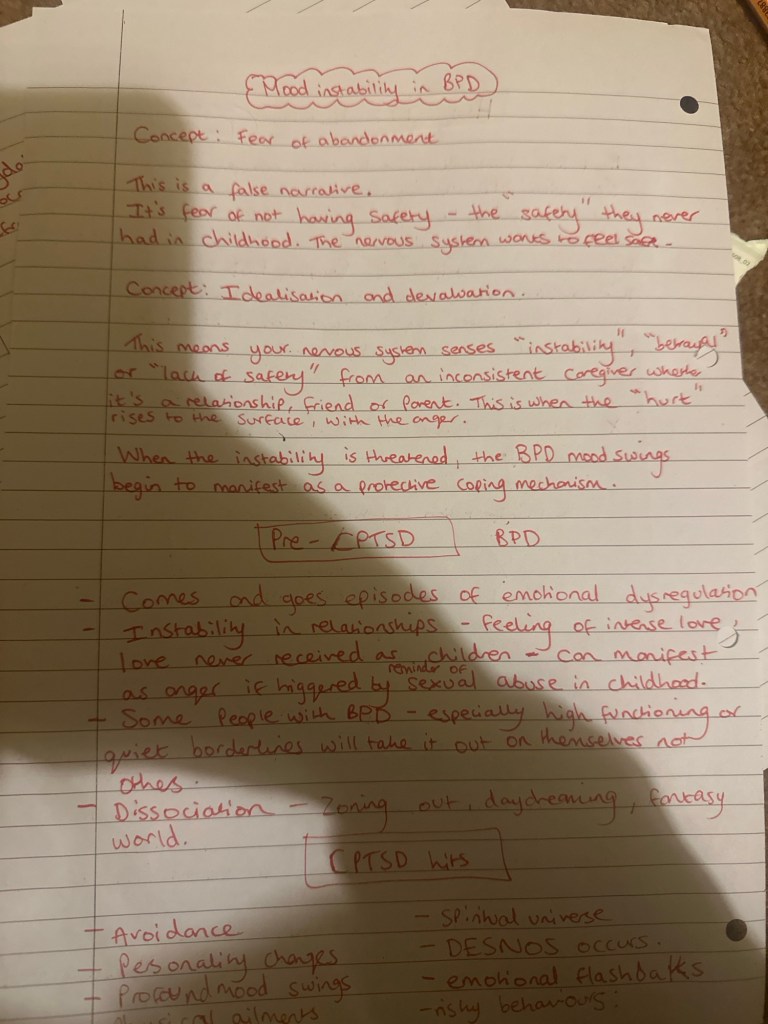 Mood instability in BPD
Concept: Fear of abandonment
This is a false narrative.
It's fear of not having safety - the "safety" they never
had in childhood. The nervous system wants to feel safe -
Concept: Idealisation and devaluation.
This means your nervous system senses "instability", "betrayal"
or "lack of safety" from an inconsistent caregiver whether
it's a relationship, friend or parent. This is when the "hurt"
rises to the surface, with the anger.
When the instability is threatened, the BPD mood swings
begin to manifest as a protective coping mechanism.
Pre - CPTSD BPD
- Comes and goes episodes of emotional dysregulation
- Instability in relationships - feeling of intense love,
love never received as children - can manifest
as anger if triggered by reminder of sexual abuse in childhood.
- Some People with BPD - especially high functioning or
quiet borderlines will take it out on themselves not
others.
- Dissociation - Zoning out, daydreaming, fantasy
world.
CPTSD hits
- Avoidance
- Pesonality changes
- Profound mood swings
physical ailments
- Spiritual universe
- DESNOS occurs.
- emotional flashbaks
- risky behaviours: